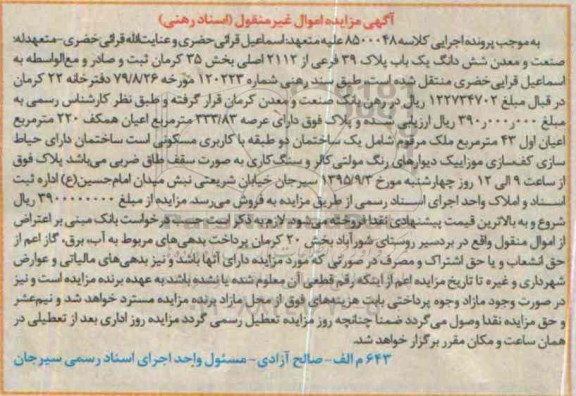 آگهی مزایده اموال غیرمنقول (اسناد رهنی)
به موجب پرونده اجرایی کلاسه ۸۵۰۰۰۴۸ علیه متعهد: اسماعیل قرائی حضری و عنایت‌الله قرائی خضری - متعهدله:
صنعت و معدن شش دانگ یک باب پلاک ۳۹ فرعی از ۲۱۱۲ اصلی بخش ۳۵ کرمان ثبت و صادر و مع‌الواسطه به
اسماعیل قرایی خضری منتقل شده است، طبق سند رهنی شماره ۱۲۰۲۲۳ مورخه ۷۹/۸/۲۶ دفترخانه ۲۲ کرمان
در قبال مبلغ ۱۲۲۷۳۴۷۰۲ ریال در رهن بانک صنعت و معدن کرمان قرار گرفته و طبق نظر کارشناس رسمی به
مبلغ ۳۹۰٫۰۰۰٫۰۰۰ ریال ارزیابی شده و پلاک فوق دارای عرصه ۳۳۳/۸۳ مترمربع اعیان همکف ۲۲۰ مترمربع
اعیان اول ۴۳ مترمربع ملک مرقوم شامل یک ساختمان دو طبقه با کاربری مسکونی است ساختمان دارای حیاط
سازی کف‌سازی موزاییک دیوارهای رنگ مولتی کالر و سنگ‌کاری به صورت سقف طاق ضربی می‌باشد پلاک فوق
از ساعت ۹ الی ۱۲ روز چهارشنبه مورخ ۱۳۹۵/۹/۳ سیرجان خیابان شریعتی نبش میدان امام حسین(ع) اداره ثبت
اسناد و املاک واحد اجرای اسناد رسمی از طریق مزایده به فروش می‌رسد. مزایده از مبلغ ۳۹۰۰۰۰۰۰۰۰ ریال
شروع و به بالاترین قیمت پیشنهادی نقدا فروخته می‌شود. لازم به ذکر است حسب درخواست بانک مبنی بر اعتراض
از اموال منقول واقع در بردسیر روستای شورآباد بخش ۲۰ کرمان پرداخت بدهی‌های مربوط به آب، برق، گاز اعم از
حق انشعاب و یا حق اشتراک و مصرف در صورتی که مورد مزایده دارای آنها باشد و نیز بدهی‌های مالیاتی و عوارض
شهرداری و غیره تا تاریخ مزایده اعم از اینکه رقم قطعی آن معلوم شده یا نشده باشد به عهده برنده مزایده است و نیز
در صورت وجود مازاد وجوه پرداختی بابت هزینه‌های فوق از محل مازاد برنده مزایده مسترد خواهد شد و نیم‌عشر
و حق مزایده نقدا وصول می‌گردد ضمنا چنانچه روز مزایده تعطیل رسمی گردد مزایده روز اداری بعد از تعطیلی در
همان ساعت و مکان مقرر برگزار خواهد شد.
۶۴۳ م الف - صالح آزادی - مسئول واحد اجرای اسناد رسمی سیرجان